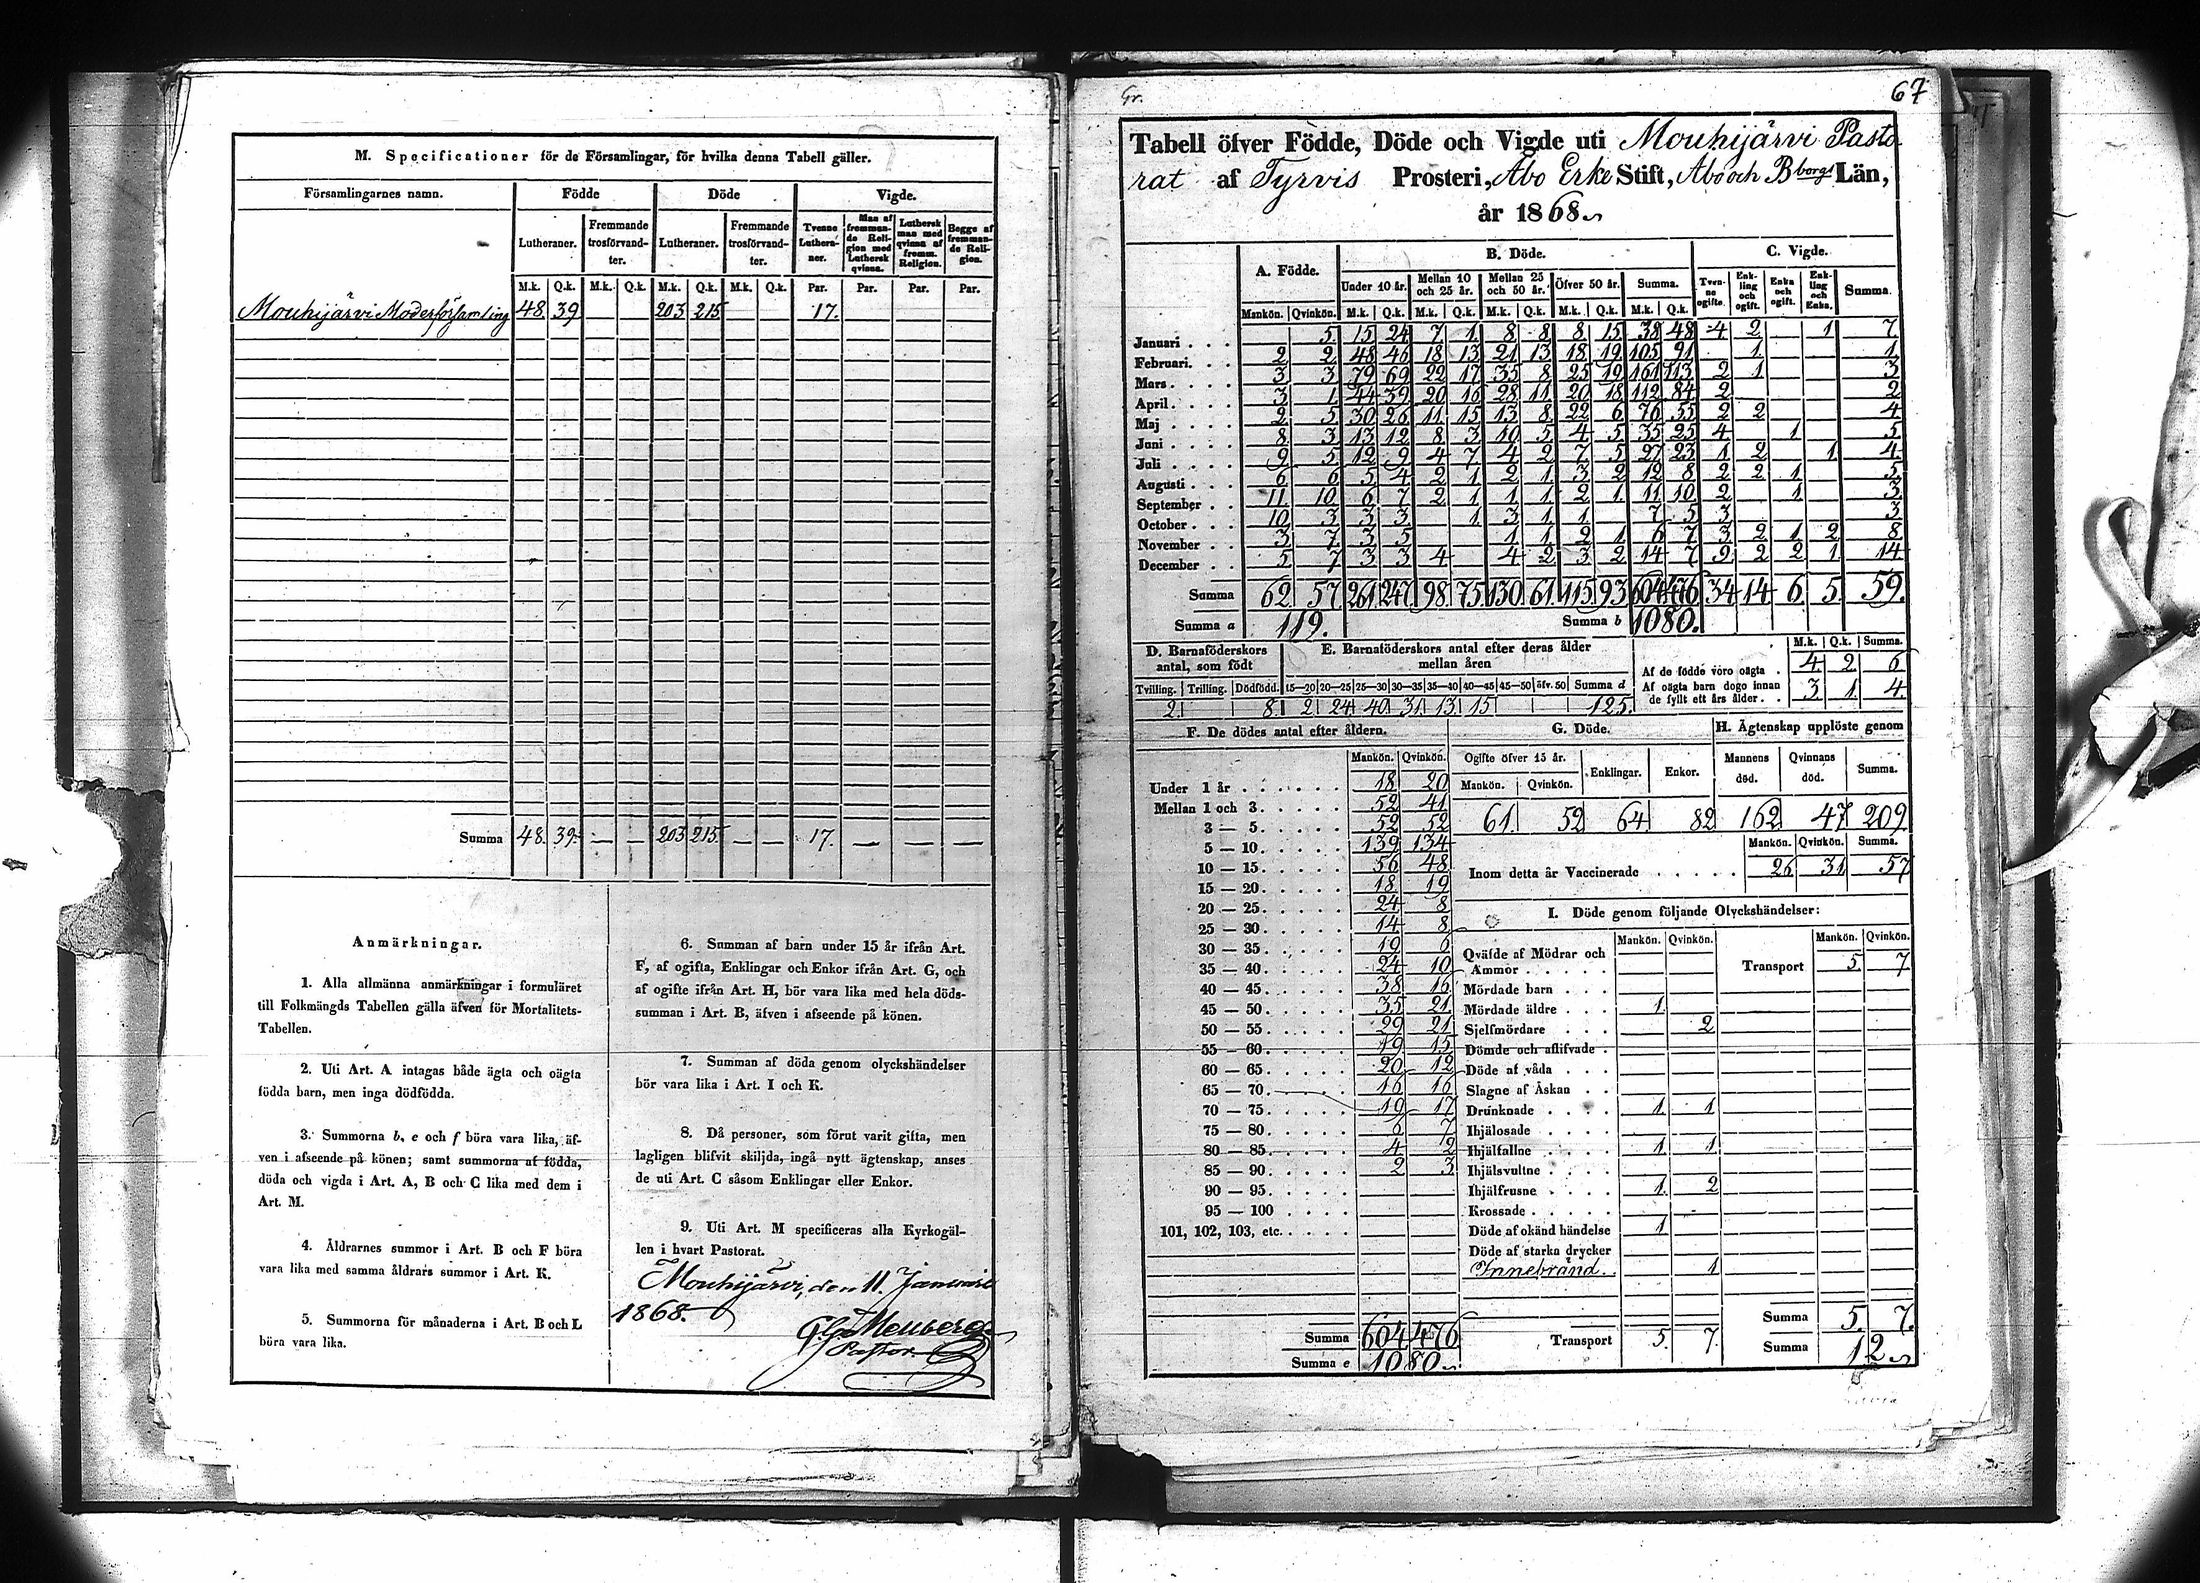 M. Specificationer för de Församlingar, för hvilka denna Tabell gäller.
Församlingarnes namn. Födde Döde Vigde.
Lutheraner. Fremmande trosförvandter. Lutheraner. Fremmande trosförvandter. Tvenne Lutheraner. Man af fremmande Religion med Luthersk qvinna. Luthersk man med qvinna af fremm. Religion. Begge af fremmande Religion.
M.k. Q.k. M.k. Q.k. M.k. Q.k. M.k. Q.k. Par. Par. Par. Par.
Mouhijärvi Moderförsamling 48 39 203 215 17.
Summa 48. 39. — — 203 215. — — 17. — — —
Anmärkningar.
1. Alla allmänna anmärkningar i formuläret
till Folkmängds Tabellen gälla äfven för Mortalitets-
Tabellen.
2. Uti Art. A intagas både ägta och oägta
födda barn, men inga dödfödda.
3. Summorna b, e och f böra vara lika, äf-
ven i afseende på könen; samt summorna af födda,
döda och vigda i Art. A, B och C lika med dem i
Art. M.
4. Åldrarnes summor i Art. B och F böra
vara lika med samma åldrars summor i Art. K.
5. Summorna för månaderna i Art. B och L
böra vara lika.
6. Summan af barn under 15 år ifrån Art.
F, af ogifta, Enklingar och Enkor ifrån Art. G, och
af ogifte ifrån Art. H, bör vara lika med hela döds-
summan i Art. B, äfven i afseende på könen.
7. Summan af döda genom olyckshändelser
bör vara lika i Art. I och K.
8. Då personer, som förut varit gifta, men
lagligen blifvit skiljda, ingå nytt ägtenskap, anses
de uti Art. C såsom Enklingar eller Enkor.
9. Uti Art. M specificeras alla Kyrkogäl-
len i hvart Pastorat.
Mouhijärvi, den 11. Januari
1868.
Pastor.
Gr. 67
Tabell öfver Födde, Döde och Vigde uti Mouhijärvi Pasto
rat af Tyrvis Prosteri, Åbo Erke Stift, Åbo och Bborgs Län,
år 1868
A. Födde. B. Döde. C. Vigde.
Under 10 år. Mellan 10 och 25 år. Mellan 25 och 50 år. Öfver 50 år. Summa. Tvenne ogifte. Enkling och ogift. Enka och ogift. Enkling och Enka. Summa.
Mankön. Qvinkön. M.k. Q.k. M.k. Q.k. M.k. Q.k. M.k. Q.k. M.k. Q.k.
Januari . . . 5 15 24 7 1 8 8 8 15 38 48 4 2 1 7
Februari. . . 2 2 48 46 18 13 21 13 18 19 105 91 1 1
Mars . . . . 3 3 79 69 22 17 35 8 25 19 161 113 2 1 3
April. . . . 3 1 44 39 20 16 28 11 20 18 112 84 2 2
Maj . . . . 2 5 30 26 11 15 13 8 22 6 76 55 2 2 4
Juni . . . . 8 3 13 12 8 3 10 5 4 5 35 25 4 1 5
Juli . . . . 9 5 12 9 4 7 4 2 7 5 27 23 1 2 1 4
Augusti . . . 6 6 5 4 2 1 2 1 3 2 12 8 2 2 1 5
September . . 11 10 6 7 2 1 1 1 2 1 11 10 2 1 3
October . . . 10 3 3 3 1 3 1 1 7 5 3 3
November . . 3 7 3 5 1 1 2 1 6 7 3 2 1 2 8
December . . 5 7 3 3 4 4 2 3 2 14 7 9 2 2 1 14
Summa 62 57 261 247 98 75 130 61 115 93 604 476 34 14 6 5. 59.
Summa a 119. Summa b 1080.
D. Barnaföderskors antal, som födt
Tvilling. Trilling. Dödfödd.
2 8
E. Barnaföderskors antal efter deras ålder mellan åren
15—20 20—25 25—30 30—35 35—40 40—45 45—50 öfv. 50 Summa d
2 24 40 31 13 15 125.
M.k. Q.k. Summa.
Af de födde voro oägta . 4 2 6
Af oägta barn dogo innan
de fyllt ett års ålder . . 3 1 4
F. De dödes antal efter åldern.
Mankön. Qvinkön.
Under 1 år . . . . . . 18 20
Mellan 1 och 3 . . . . . 52 41
3 — 5. . . . . 52 52
5 — 10. . . . . 139 134
10 — 15. . . . . 56 48
15 — 20. . . . . 18 19
20 — 25. . . . . 24 8
25 — 30. . . . . 14 8
30 — 35. . . . . 19 6
35 — 40. . . . . 24 10
40 — 45. . . . . 38 16
45 — 50. . . . . 35 21
50 — 55. . . . . 29 21
55 — 60. . . . . 19 15
60 — 65. . . . . 20 12
65 — 70. . . . . 16 16
70 — 75. . . . . 19 17
75 — 80. . . . . 6 7
80 — 85. . . . . 4 2
85 — 90. . . . . 2 3
90 — 95. . . . .
95 — 100 . . . .
101, 102, 103, etc. . . . .
Summa 604 476
Summa e 1080
G. Döde.
Ogifte öfver 15 år. Enklingar. Enkor.
Mankön. Qvinkön.
61. 52 64 82
H. Ägtenskap upplöste genom
Mannens död. Qvinnans död. Summa.
162 47 209.
Mankön. Qvinkön. Summa.
Inom detta år Vaccinerade . . . . . . 26 31 57
I. Döde genom följande Olyckshändelser:
Mankön. Qvinkön. Mankön. Qvinkön.
Qväfde af Mödrar och
Ammor . . . . . Transport 5 7
Mördade barn . . .
Mördade äldre . . . 1
Sjelfmördare . . . 2
Dömde och aflifvade .
Döde af våda . . .
Slagne af Åskan . .
Drunknade . . . . 1 1
Ihjälosade . . . .
Ihjälfallne . . . . 1 1
Ihjälsvultne . . . .
Ihjälfrusne . . . . 1 2
Krossade . . . . .
Döde af okänd händelse 1
Döde af starka drycker
Innebränd. 1
Summa 5. 7.
Transport 5. 7. Summa 12